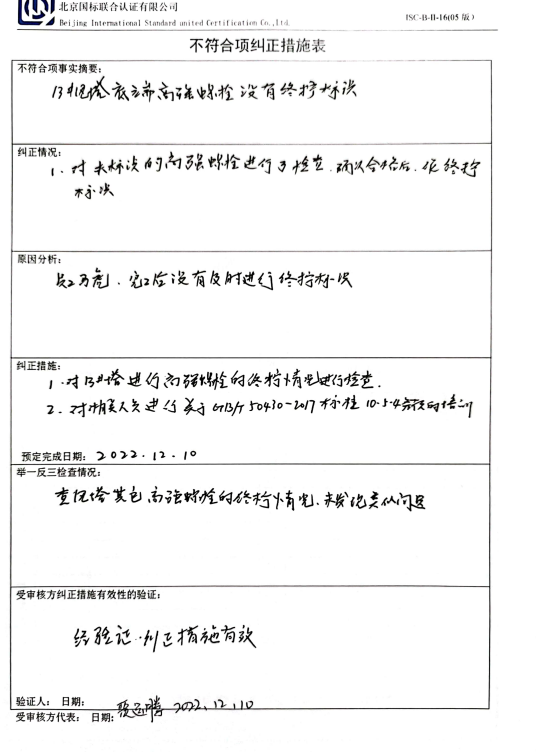 北京国标联合认证有限公司
Beijing International Standard united Certification Co.,Ltd.
ISC-B-II-16(05 版)
不符合项纠正措施表
不符合项事实摘要:
13#塔底端高强螺栓没有终拧标识
纠正情况:
1. 对未标识的高强螺栓进行了检查,确认合格后,作终拧
标识
原因分析:
员工疏忽,完工后没有及时进行终拧标识
纠正措施:
1. 对13#塔进行高强螺栓的终拧情况进行检查.
2. 对相关人员进行关于GB/T 50430-2017标准10.5.4条款的培训
预定完成日期: 2022.12.10
举一反三检查情况:
查现塔其它高强螺栓的终拧情况,未发现类似问题
受审核方纠正措施有效性的验证:
经验证,纠正措施有效
验证人: 日期: 2022.12.10
受审核方代表: 日期: